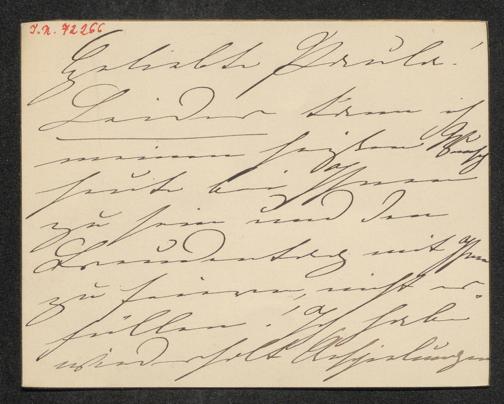 J.N. 72266
Geliebte Paula!
Leider kann ich
meinen heißen Wunsch
heute bei Ihnen
zu sein und den
Freudentag mit Ihnen
zu feiern, nicht er-
füllen! Ich habe
wiederholt